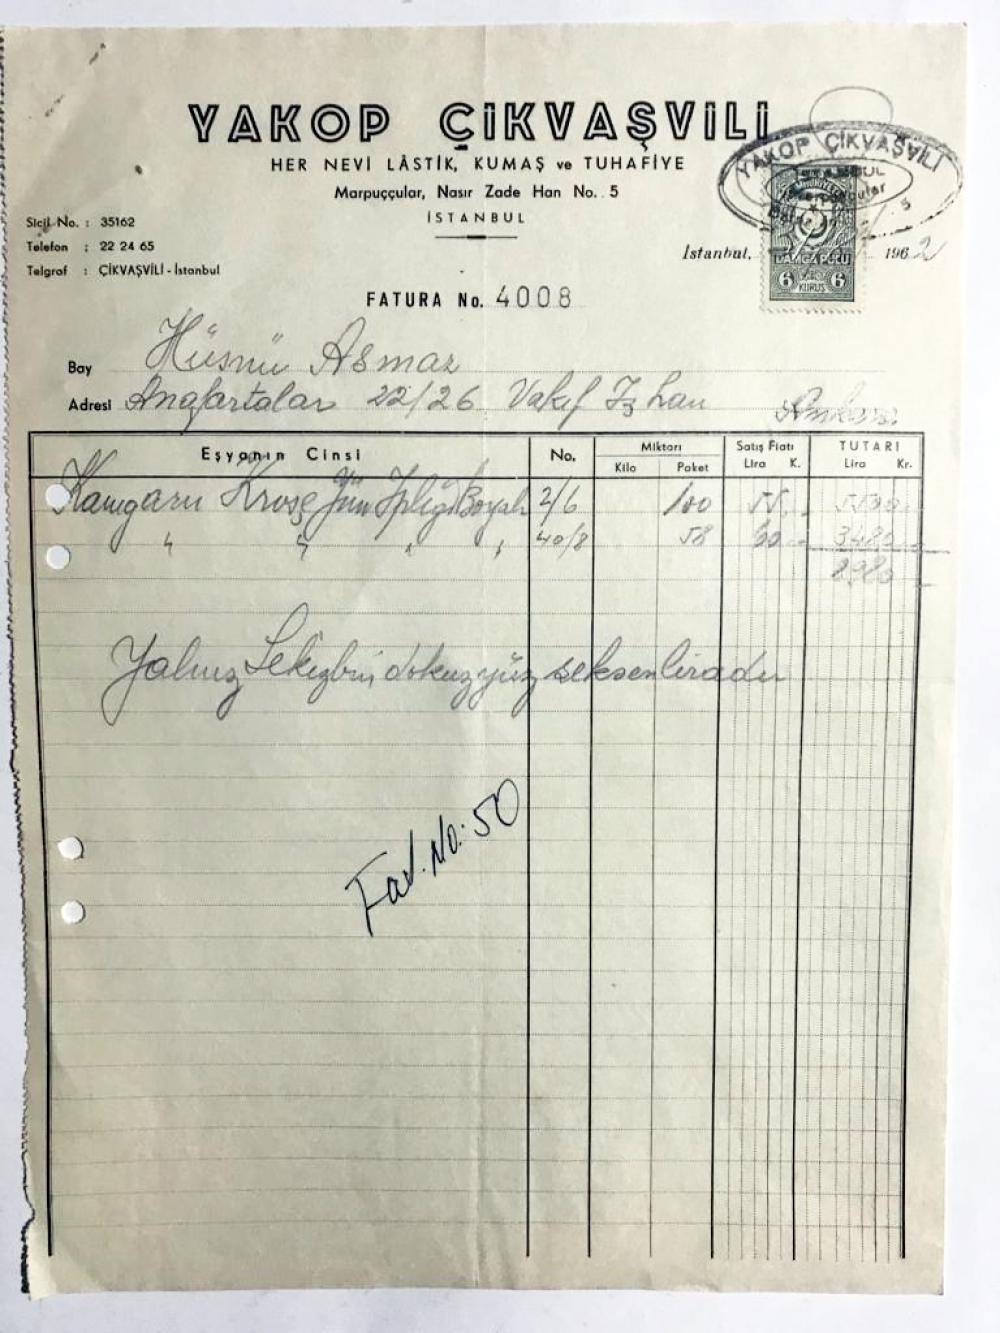 YAKOP ÇİKVAŞVİLİ
HER NEVİ LÂSTİK, KUMAŞ ve TUHAFİYE
Marpuççular, Nasır Zade Han No. 5
İSTANBUL
Sicil No. : 35162
Telefon : 22 24 65
Telgraf : ÇİKVAŞVİLİ - İstanbul
YAKOP ÇİKVAŞVİLİ
DAMGA PULU
6 KURUŞ 6
İstanbul, 1962
FATURA No. 4008
Bay Hüsnü Asmaz
Adresi Anafartalar 22/26 Vakıf İş hanı Ankara
Eşyanın Cinsi No. Miktarı Satış Fiatı TUTARI
Kilo Paket Lira K. Lira Kr.
Kamgarn Kroşe Yün İpliği Boyalı 2/6 100 55 5500
" " " " 40/8 58 60 3480
8980
Yalnız Sekizbin dokuzyüz seksenliradır
Fat. No: 50